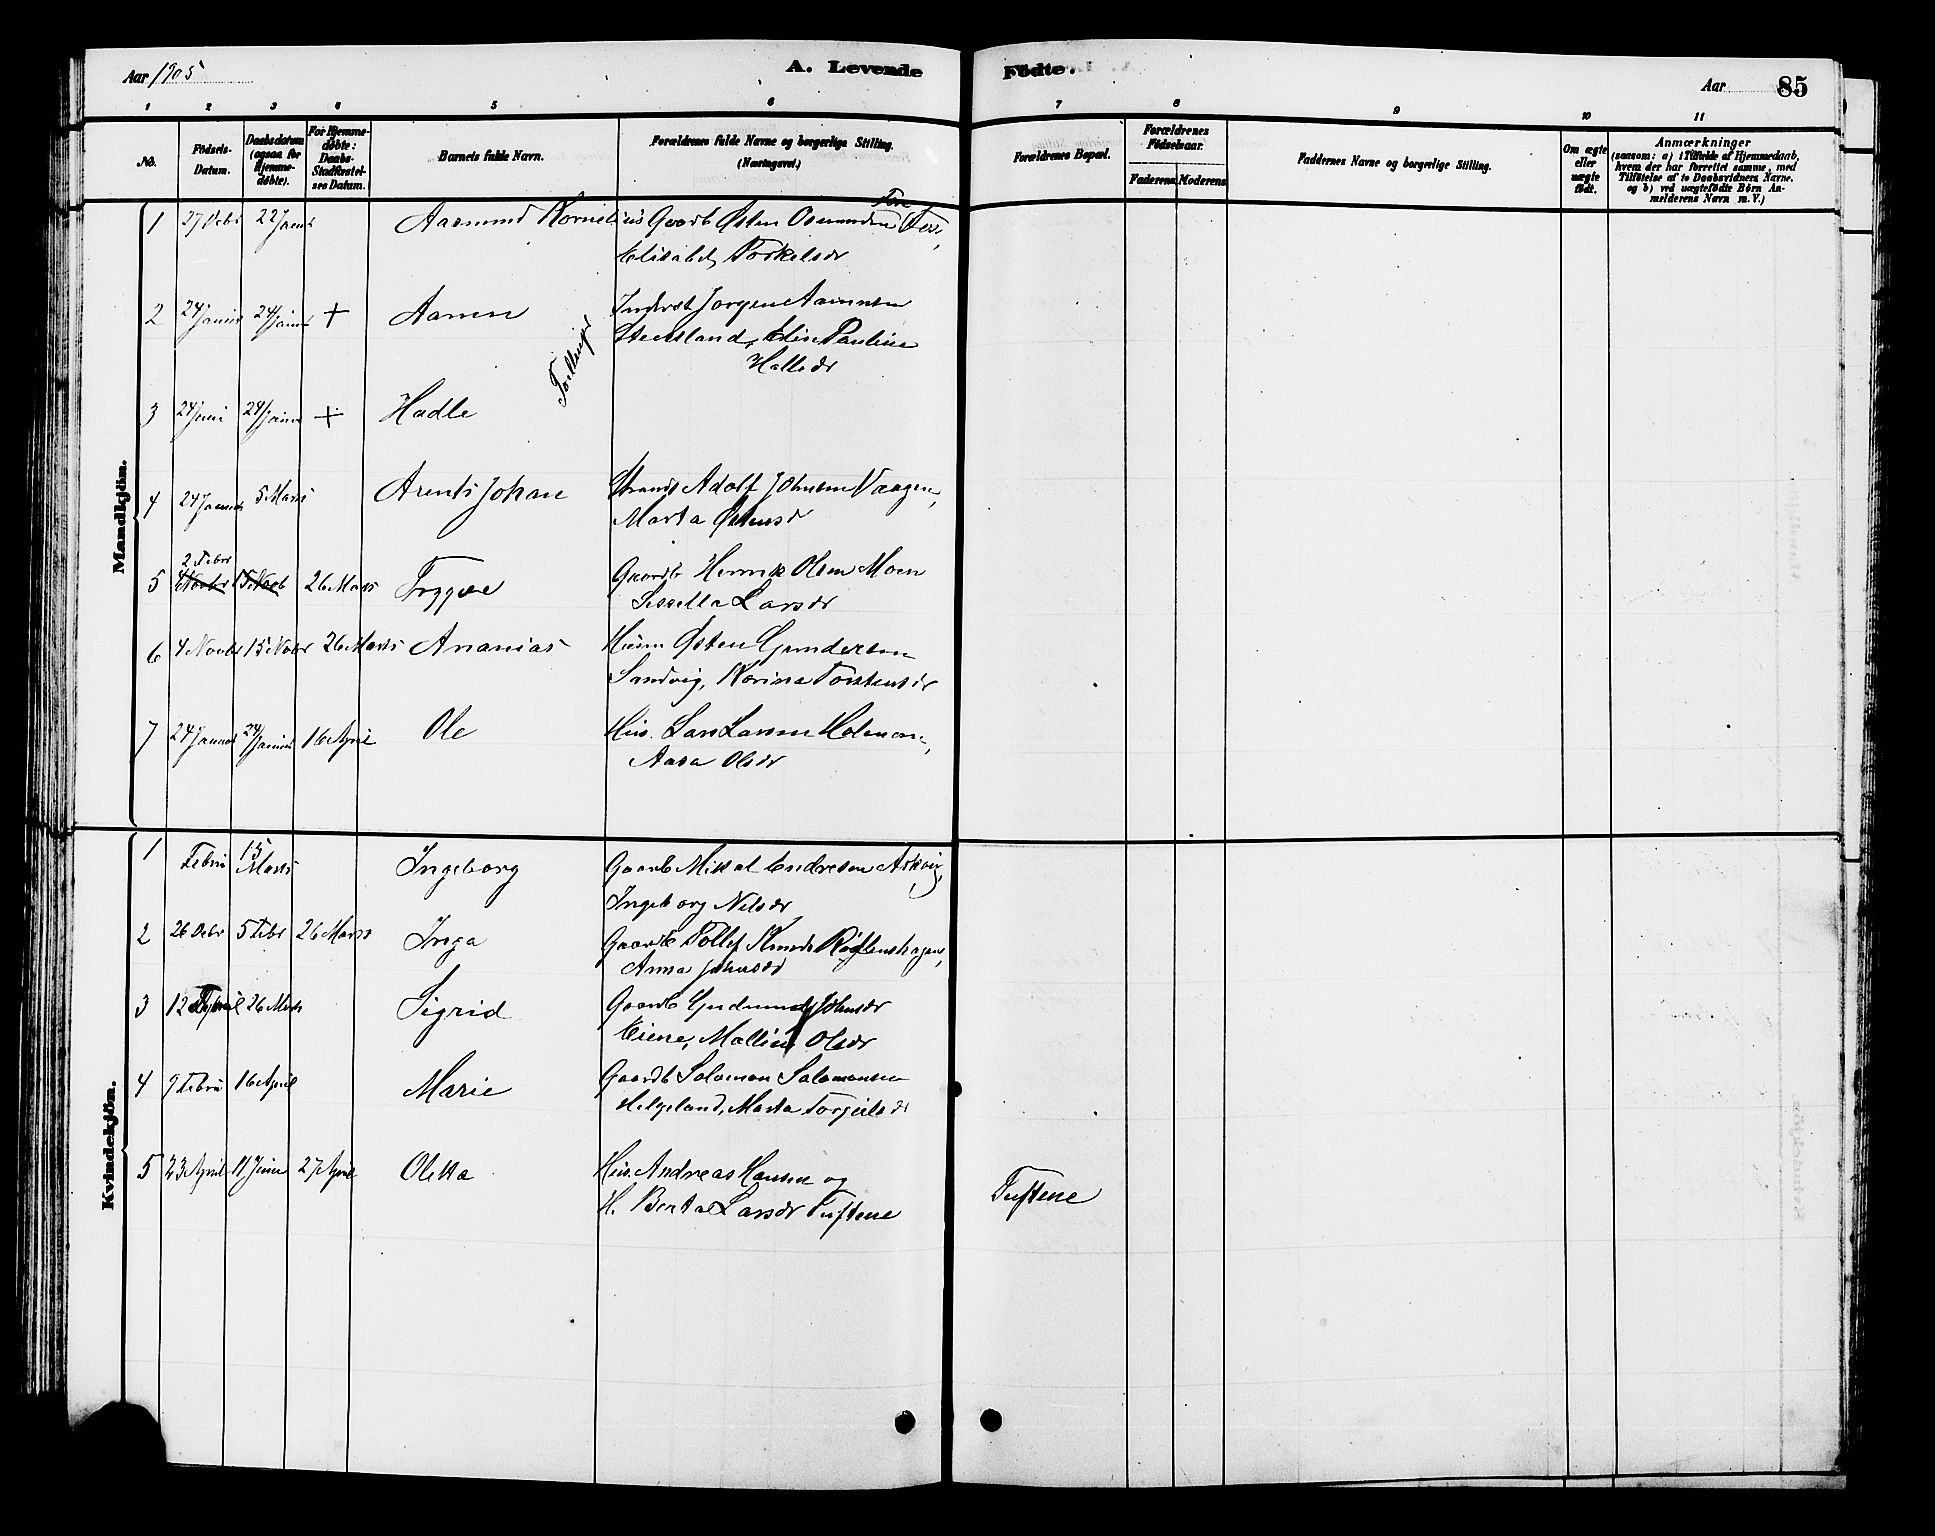 Aar 1905
A. Levende
Födte.
Aar 85
1 2 3 4 5 6 7 8 9 10 11
No.
Födsels-
Datum.
Daabsdatum
(ogsaa for
Hjemme-
döbte).
For Hjemme-
döbte:
Daabs-
Stadfæstel-
ses Datum.
Barnets fulde Navn.
Forældrenes fulde Navne og borgerlige Stilling.
(Næringsvei.)
Forældrenes Bopæl.
Forældrenes
Födselsaar.
Faderens. Moderens.
Faddernes Navne og borgerlige Stilling.
Om ægte
eller
uægte
födt.
Anmærkninger
(saasom: a) i Tilfælde af Hjemmedaab,
hvem der har forrettet samme, med
Tilföielse af to Daabsvidners Navne.
og b) ved uægtefödte Börn An-
melderens Navn m. V.)
Mandkjön.
1 27 Debr 22 Januar Aasmund Kornelius Gaardb Østen Osmundsen
Elisabet Torkelsdr
2 24 Januar 24 Januar + Aamen Inderst Jørgen Aamensen
Steensland, Elin Pauline
Hallsdr
Tvillinger
3 24 Januar 24 Januar + Hadle
4 24 Januar 5 Marts Arents Johan Strands Adolf Johnsen Vaagen,
Marta Østensdr
2 Febr
5 4 Novbr 15 Novb 26 Marts Tryggve Gaardb Henrik Olsen Moen
Sissella Larsdr
6 4 Novbr 15 Novbr 26 Marts Ananias Husm Østen Gundersen
Sandvig, Karina Torstensdr
7 24 Januar 24 Januar 16 April Ole Hus. Lars Larsen
Aasa Olsdr
Kvindekjön.
1 Febru 15
Marts Ingeborg Gaardb Mikal Endresen Askvig,
Ingeborg Nilsdr
2 26 Debr 5 Febr 26 Marts Inga Gaardb Tollef
Anna Johnsdr
3 12 26 Marts Sigrid Gaardb Gudmund
Eiene, Malline Olsdr
4 9 Febru 16 April Marie Gaardb Salomon Salomonsen
Helgeland, Marta Torgeilsdr
5 23 April 11 Juni 27 April Oletta Hus. Andreas Hansen og
H. Berta Larsdr Tuftene Tuftene